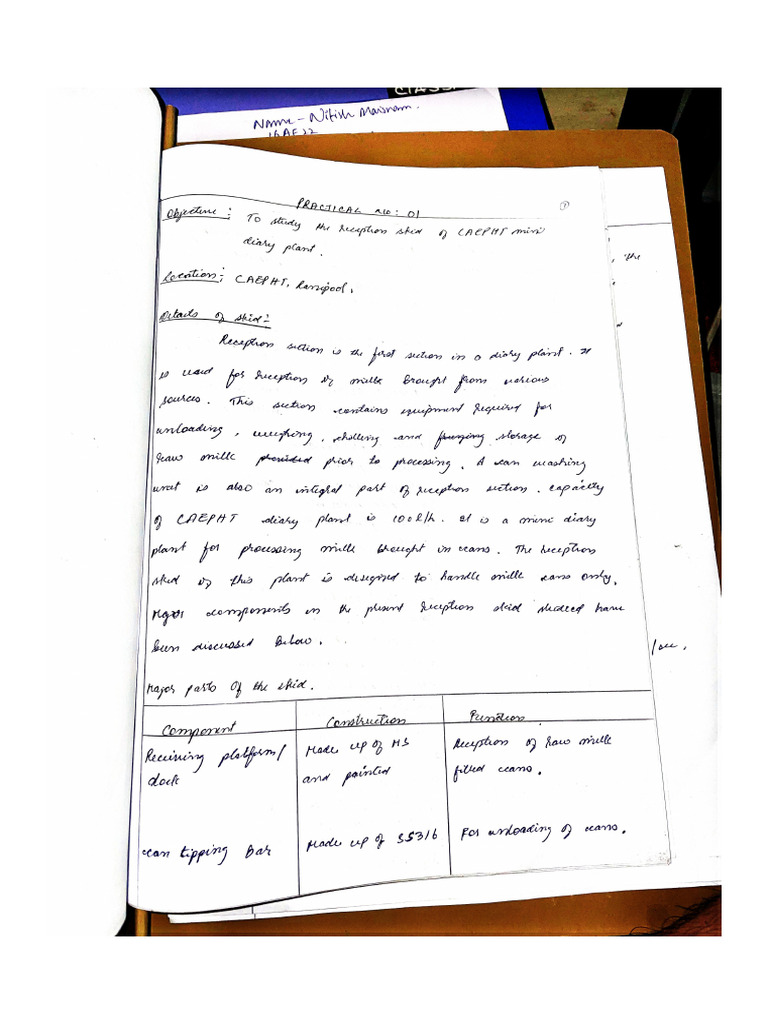 CLASS
Name - Nitish Maisnam.
PRACTICAL NO: 01
Objective: To study the reception skid of CAEPHT mini
diary plant.
Location: CAEPHT, Ranipool,
Details of skid:-
Reception section is the first section in a diary plant. It
is used for reception of milk brought from various
sources. This section contains equipment required for
unloading, weighing, chilling and storage of
raw milk provided prior to processing. A can washing
unit is also an integral part of reception section. capacity
of CAEPHT diary plant is 100 l/h. It is a mini diary
plant for processing milk brought in cans. The reception
skid of this plant is designed to handle milk cans only.
Major components in the present reception skid studied have
been discussed below.
Major parts of the skid.
Component Construction Function
Receiving platform/ Made up of MS Reception of raw milk
dock and painted filled cans.
can tipping Bar Made up of SS316 For unloading of cans.
the
/sec.